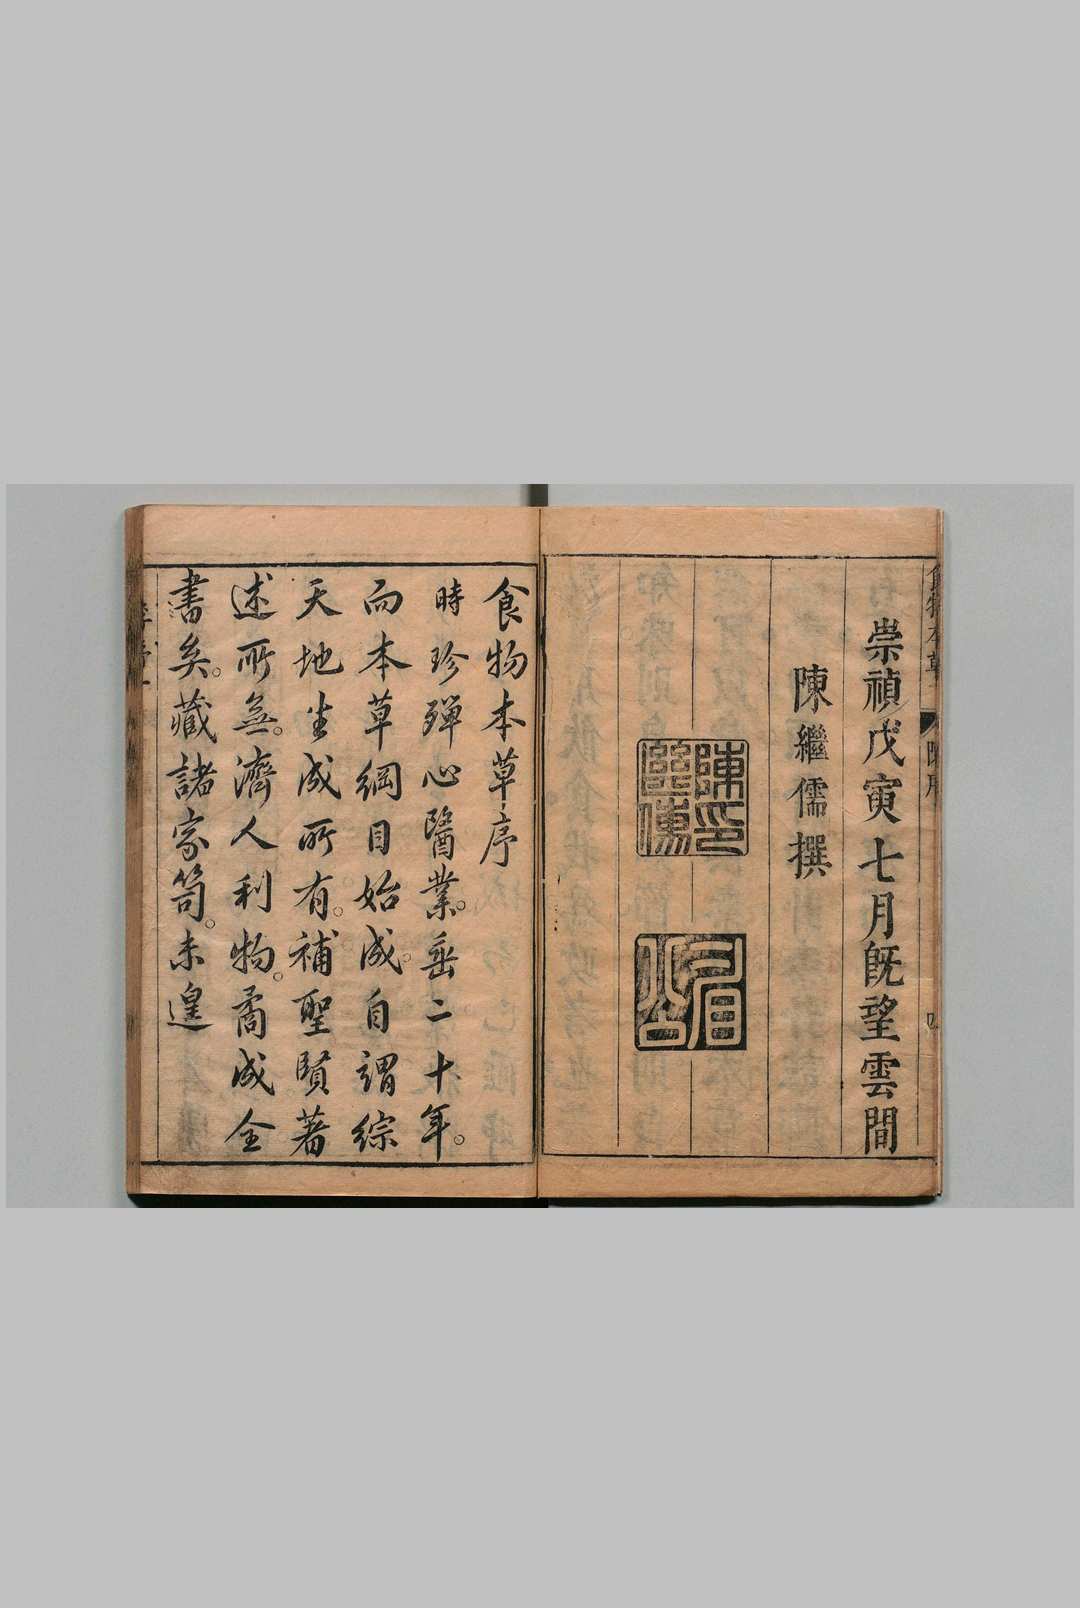 崇禎戊寅七月旣望雲間
陳繼儒撰
陳印
繼儒
眉公
食物本草序
時珍殫心醫業。垂二十年。
而本草綱目始成。自謂綜
天地生成所有。補聖賢著
述所無。濟人利物。裔成全
書矣。藏諸家笥。未遑